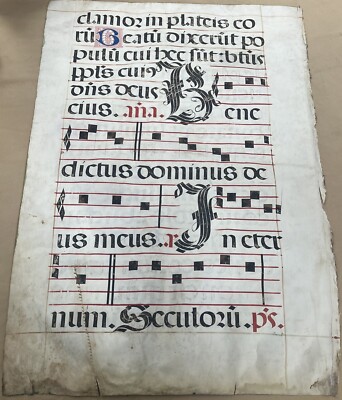 clamor in plateis eo
rū Beatū dixerūt po
pulū cui hec sūt: btūs
ppl's cuiꝰ
dn̄s deus
eius. añа. Bene
dictus dominus de
us meus. In eter
num. Seculorū. ps.